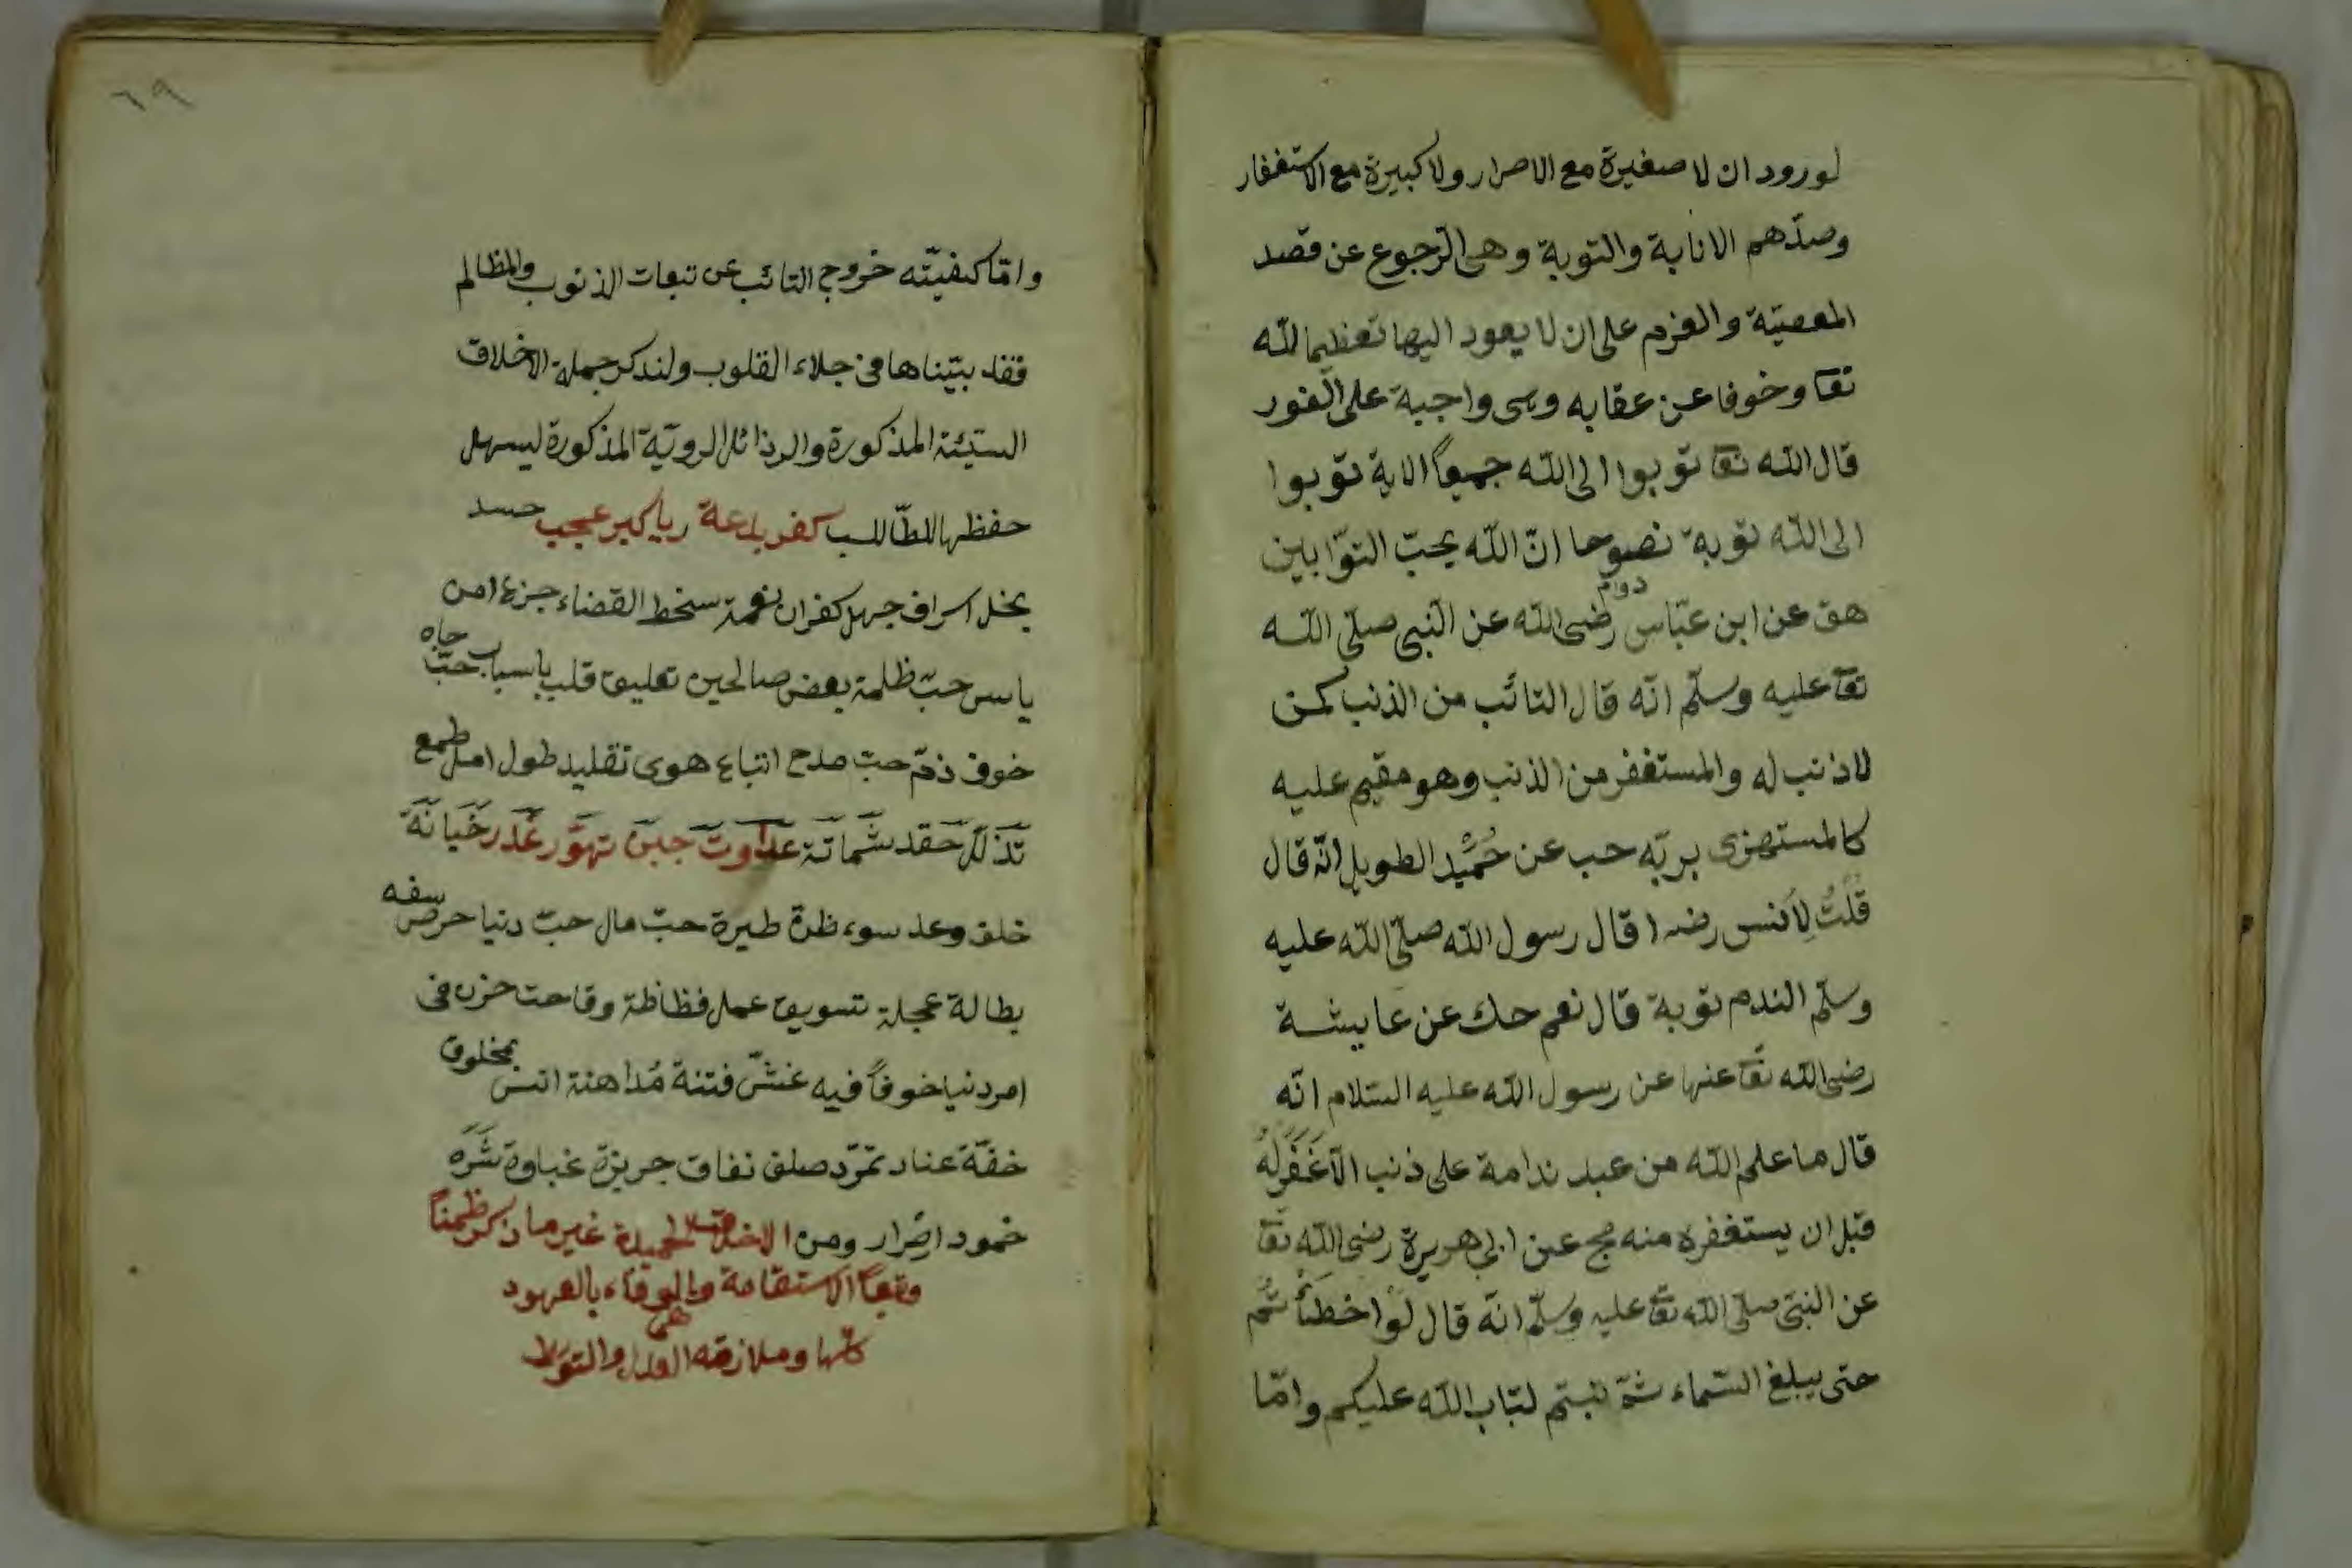 لورود ان لا صغيرة مع الاصرار ولا كبيرة مع الاستغفار
وضدّهم الانابة والتوبة وهى الرّجوع عن قصد
المعصيّة والعزم على ان لا يعود اليها تعظيما لله
تعا وخوفا عن عقابه وهى واجبة على الفور
قال الله تعا توبوا الى الله جميعاً الاية توبوا
الى الله توبة نصوحا انّ الله يحبّ التوّابين
هق عن ابن عبّاس رضى الله عن النبى صلّى الله
تعا عليه وسلّم انّه قال التائب من الذنب كمن
لا ذنب له والمستغفر من الذنب وهو مقيم عليه
كالمستهزى بربّه حب عن حُمَيْد الطويل انّه قال
قُلْتُ لِأَنس رضه ا قال رسول الله صلّى الله عليه
وسلّم الندم توبة قال نعم حك عن عايشة
رضى الله تعا عنها عن رسول الله عليه السّلام انّه
قال ما علم الله من عبد ندامة على ذنب الّا غَفَرَ لَهُ
قبل ان يستغفره منه مج عن ابى هريرة رضى الله تعا
عن النبىّ صلّى الله تعا عليه وسلّم انّه قال لَوْ اخطأتم
حتى يبلغ السّماء ثمّ تبتم لتاب الله عليكم وامّا
٦٩
وامّا كيفيّته خروج التائب عن تبعات الذنوب والمظالم
فقد بيّناها فى جلاء القلوب ولنذكر جملة الاخلاق
السيّئة المذكورة والرذائل الرديّة المذكورة ليسهل
حفظها للطّالب كفر بدعة ريا كبر عجب حسد
بخل اسراف جهل كفران نعمة سخط القضاء جزع امن
ياس حبّ ظلمة بغض صالحين تعليق قلب باسباب حبّ جاه
خوف ذمّ حبّ مدح اتباع هوى تقليد طول امل طمع
تذلّل حقد شماتة عداوت جبن تهوّر غدر خيانة
خلف وعد سوء ظنّ طيرة حبّ مال حبّ دنيا حرص سفه
بطالة عجلة تسويف عمل فظاظة وقاحت حزن فى
امر دنيا خوفاً فيه غشّ فتنة مُداهنة انس بمخلوق
خفّة عناد تمرّد صلف نفاق جربزة غباوة شَرَه
خمود اصْرار ومن الاخلاق الحميدة غير ما ذكر ضمناً
وتبعاً الاستقامة والوفاء بالعهود
كلّها وملازمة والتوسّط